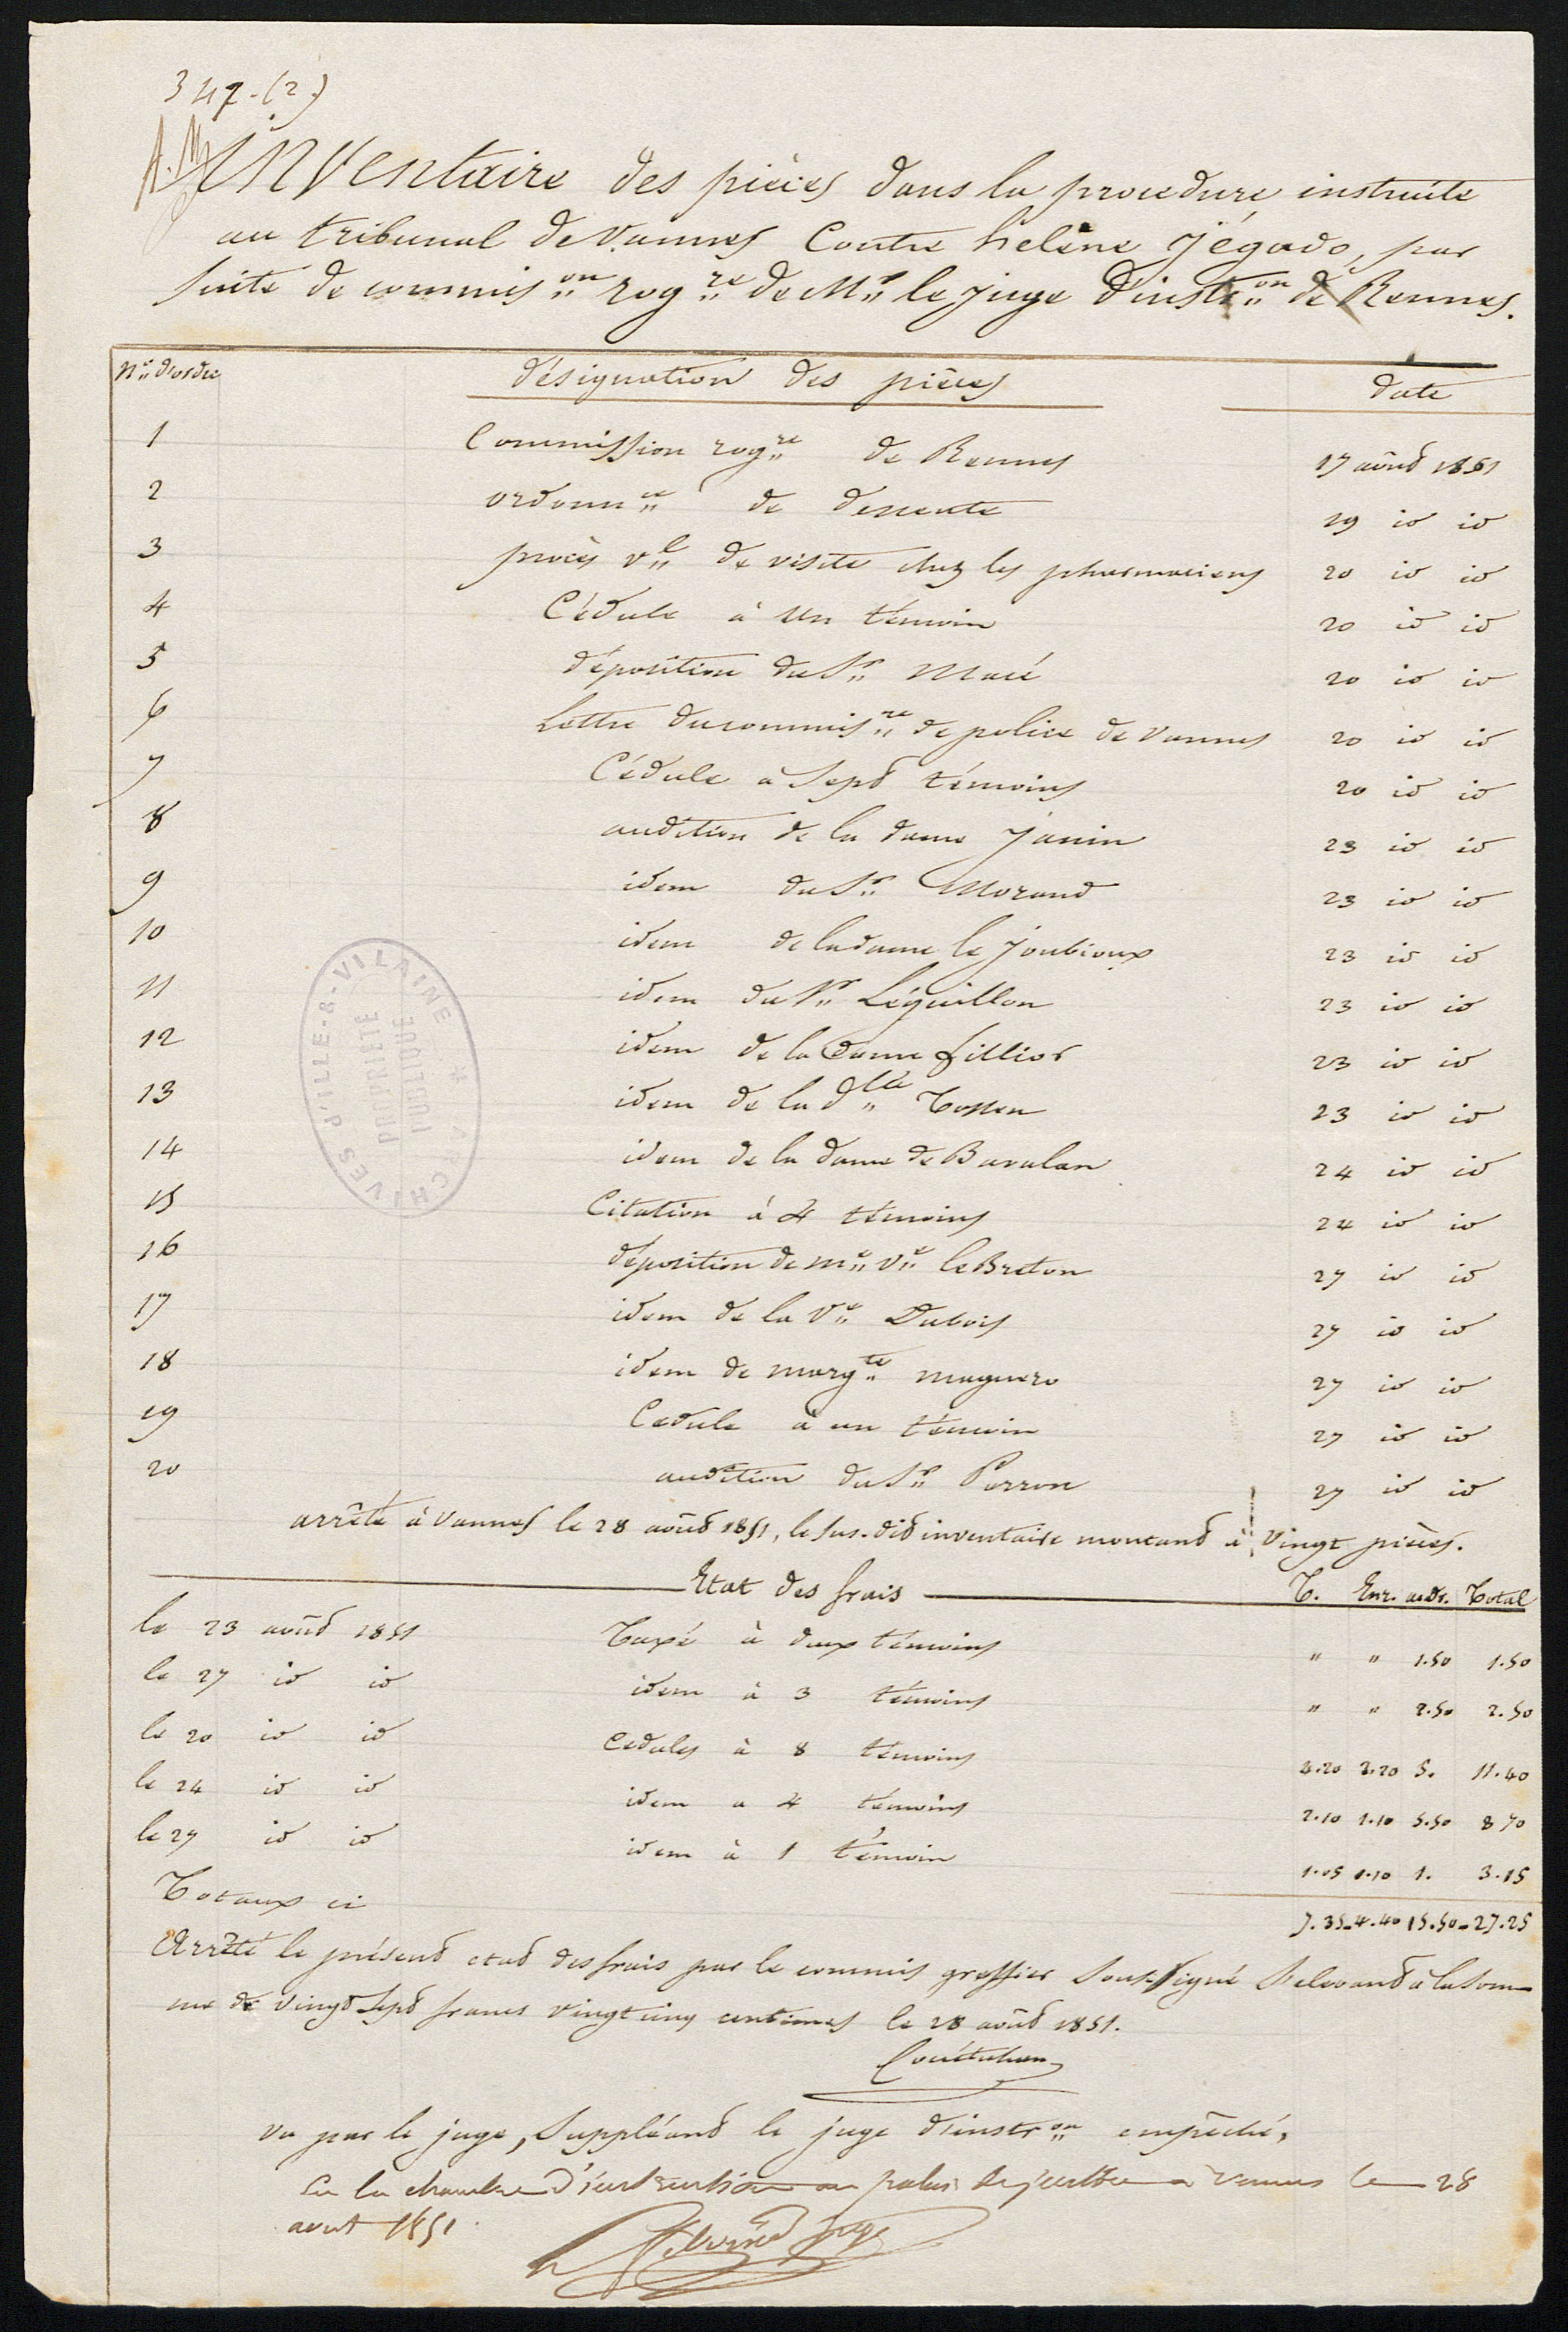 347-(2.)
A.M
Inventaire des pièces dans la procedure instruite
au tribunal de Vannes Contre hélène Jégado, par
suite de commis.on rog.re de Mr. le juge d'instr.on de Rennes.
N.o d'ordre désignation des pièces date
1 Commission rog.re de Rennes 17 août 1851
2 ordonn.ce de descente 19 id id
3 procès v.l de visite chez les pharmaciens 20 id id
4 Cédule à un témoin 20 id id
5 déposition du Sr. Macé 20 id id
6 Lettre du commis.re de police de Vannes 20 id id
7 Cédule à Sept témoins 20 id id
8 audition de la dame Janin 23 id id
9 idem du Sr. Morand 23 id id
10 idem de la dame le Joubioux 23 id id
11 idem du Sr. Léquillon 23 id id
12 idem de la dame fillior 23 id id
13 idem de la d.lle Cossen 23 id id
14 idem de la dame de Bavalan 24 id id
15 Citation à 4 témoins 24 id id
16 déposition de me. ve. le Breton 27 id id
17 idem de la Ve. Dubois 27 id id
18 idem de marg.te maguero 27 id id
19 Cédule à un témoin 27 id id
20 audition du Sr. Perron 27 id id
arrêté à Vannes le 28 août 1851, le sus-dit inventaire montant à vingt pièces.
Etat des frais T. Enr. audr. Total
le 23 août 1851 Taxé à deux témoins " " 1.50 1.50
le 27 id id idem à 3 témoins " " 2.50 2.50
le 20 id id Cedules à 8 témoins 4.20 2.20 5. 11.40
le 24 id id idem a 4 témoins 2.10 1.10 5.50 8 70
le 27 id id idem à 1 témoin 1.05 1.10 1. 3.15
Totaux ci 7.35-4.40 15.50-27.25
Arrêté le présent etat des frais par le commis greffier Soussigné S'elevant à la som-
me de vingt Sept francs vingt cinq centimes le 28 août 1851.
vu par le juge, Suppléant le juge d'instr.on empêché,
En la chambre d'instruction au palais de justice a Vannes le 28
aout 1851
juge
ARCHIVES d'ILLE-&-VILAINE *
PROPRIÉTÉ
PUBLIQUE